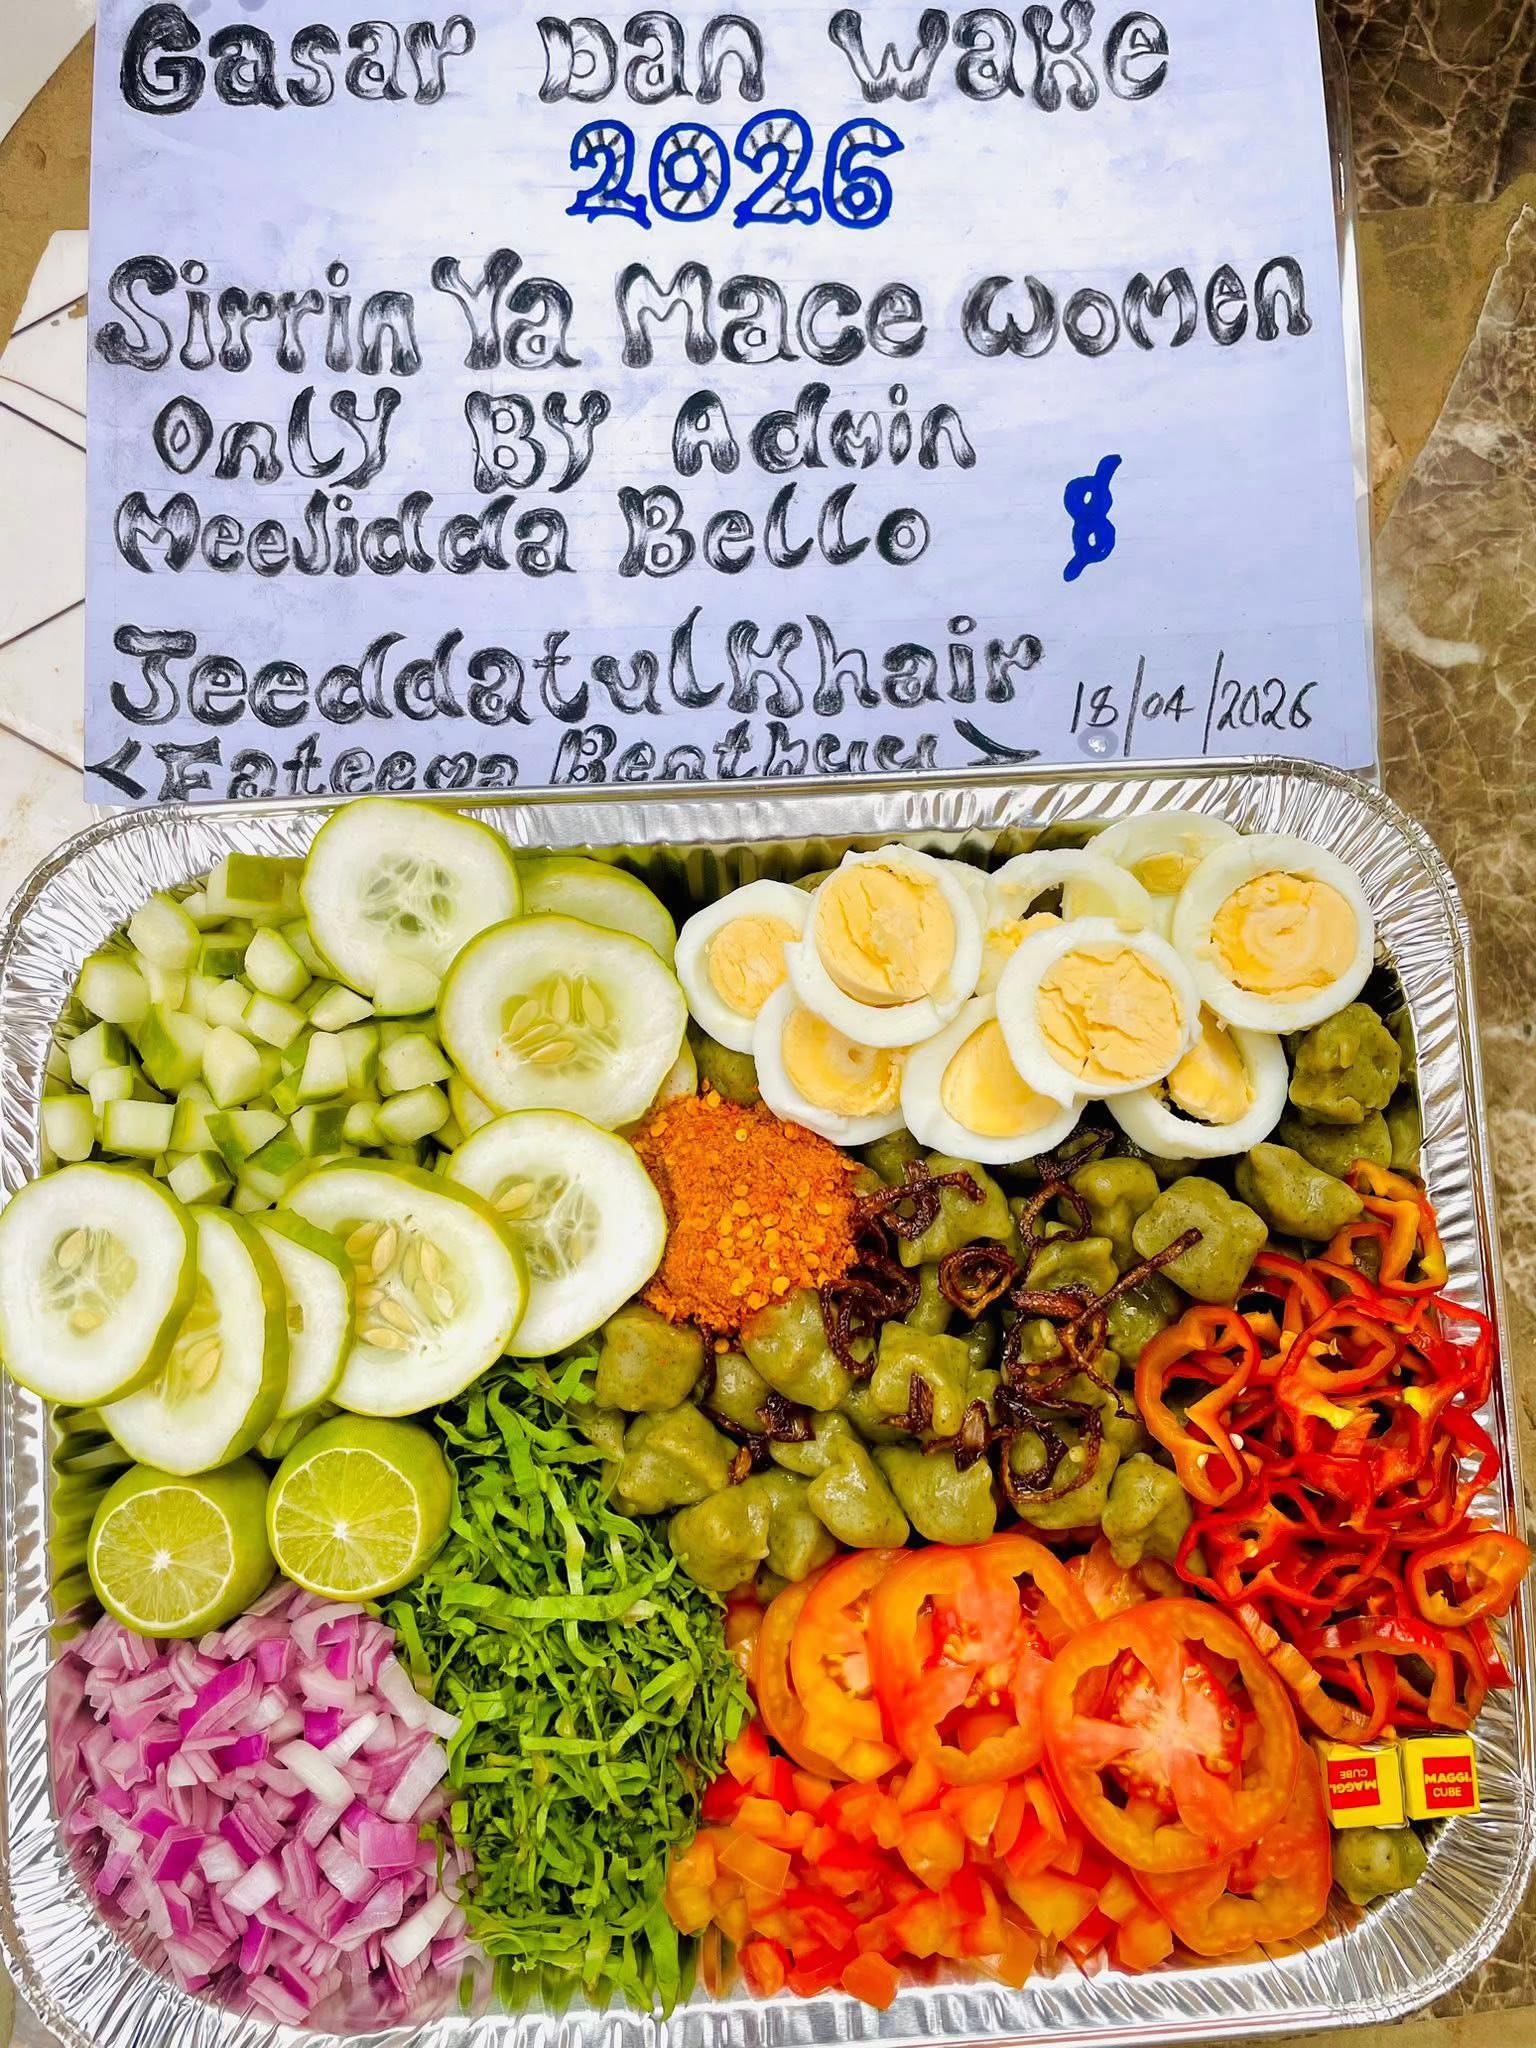 Gasar Dan Wake
2026
Sirrin Ya Mace Women
Only By Admin
MeeJidda Bello
8
JeeddatulKhair
18/04/2026
<Fateema Benthuu>
MAGGI
CUBE
MAGGI
CUBE